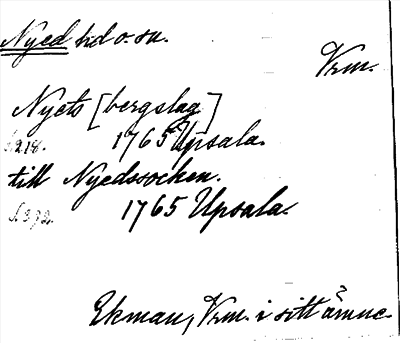 Nyed hd o. sn.
Vrm.
Nyets [bergslag]
S. 218. 1765 Upsala.
till Nyedssocken.
S. 372. 1765 Upsala.
Ekman, Vrm. i sitt ämne.